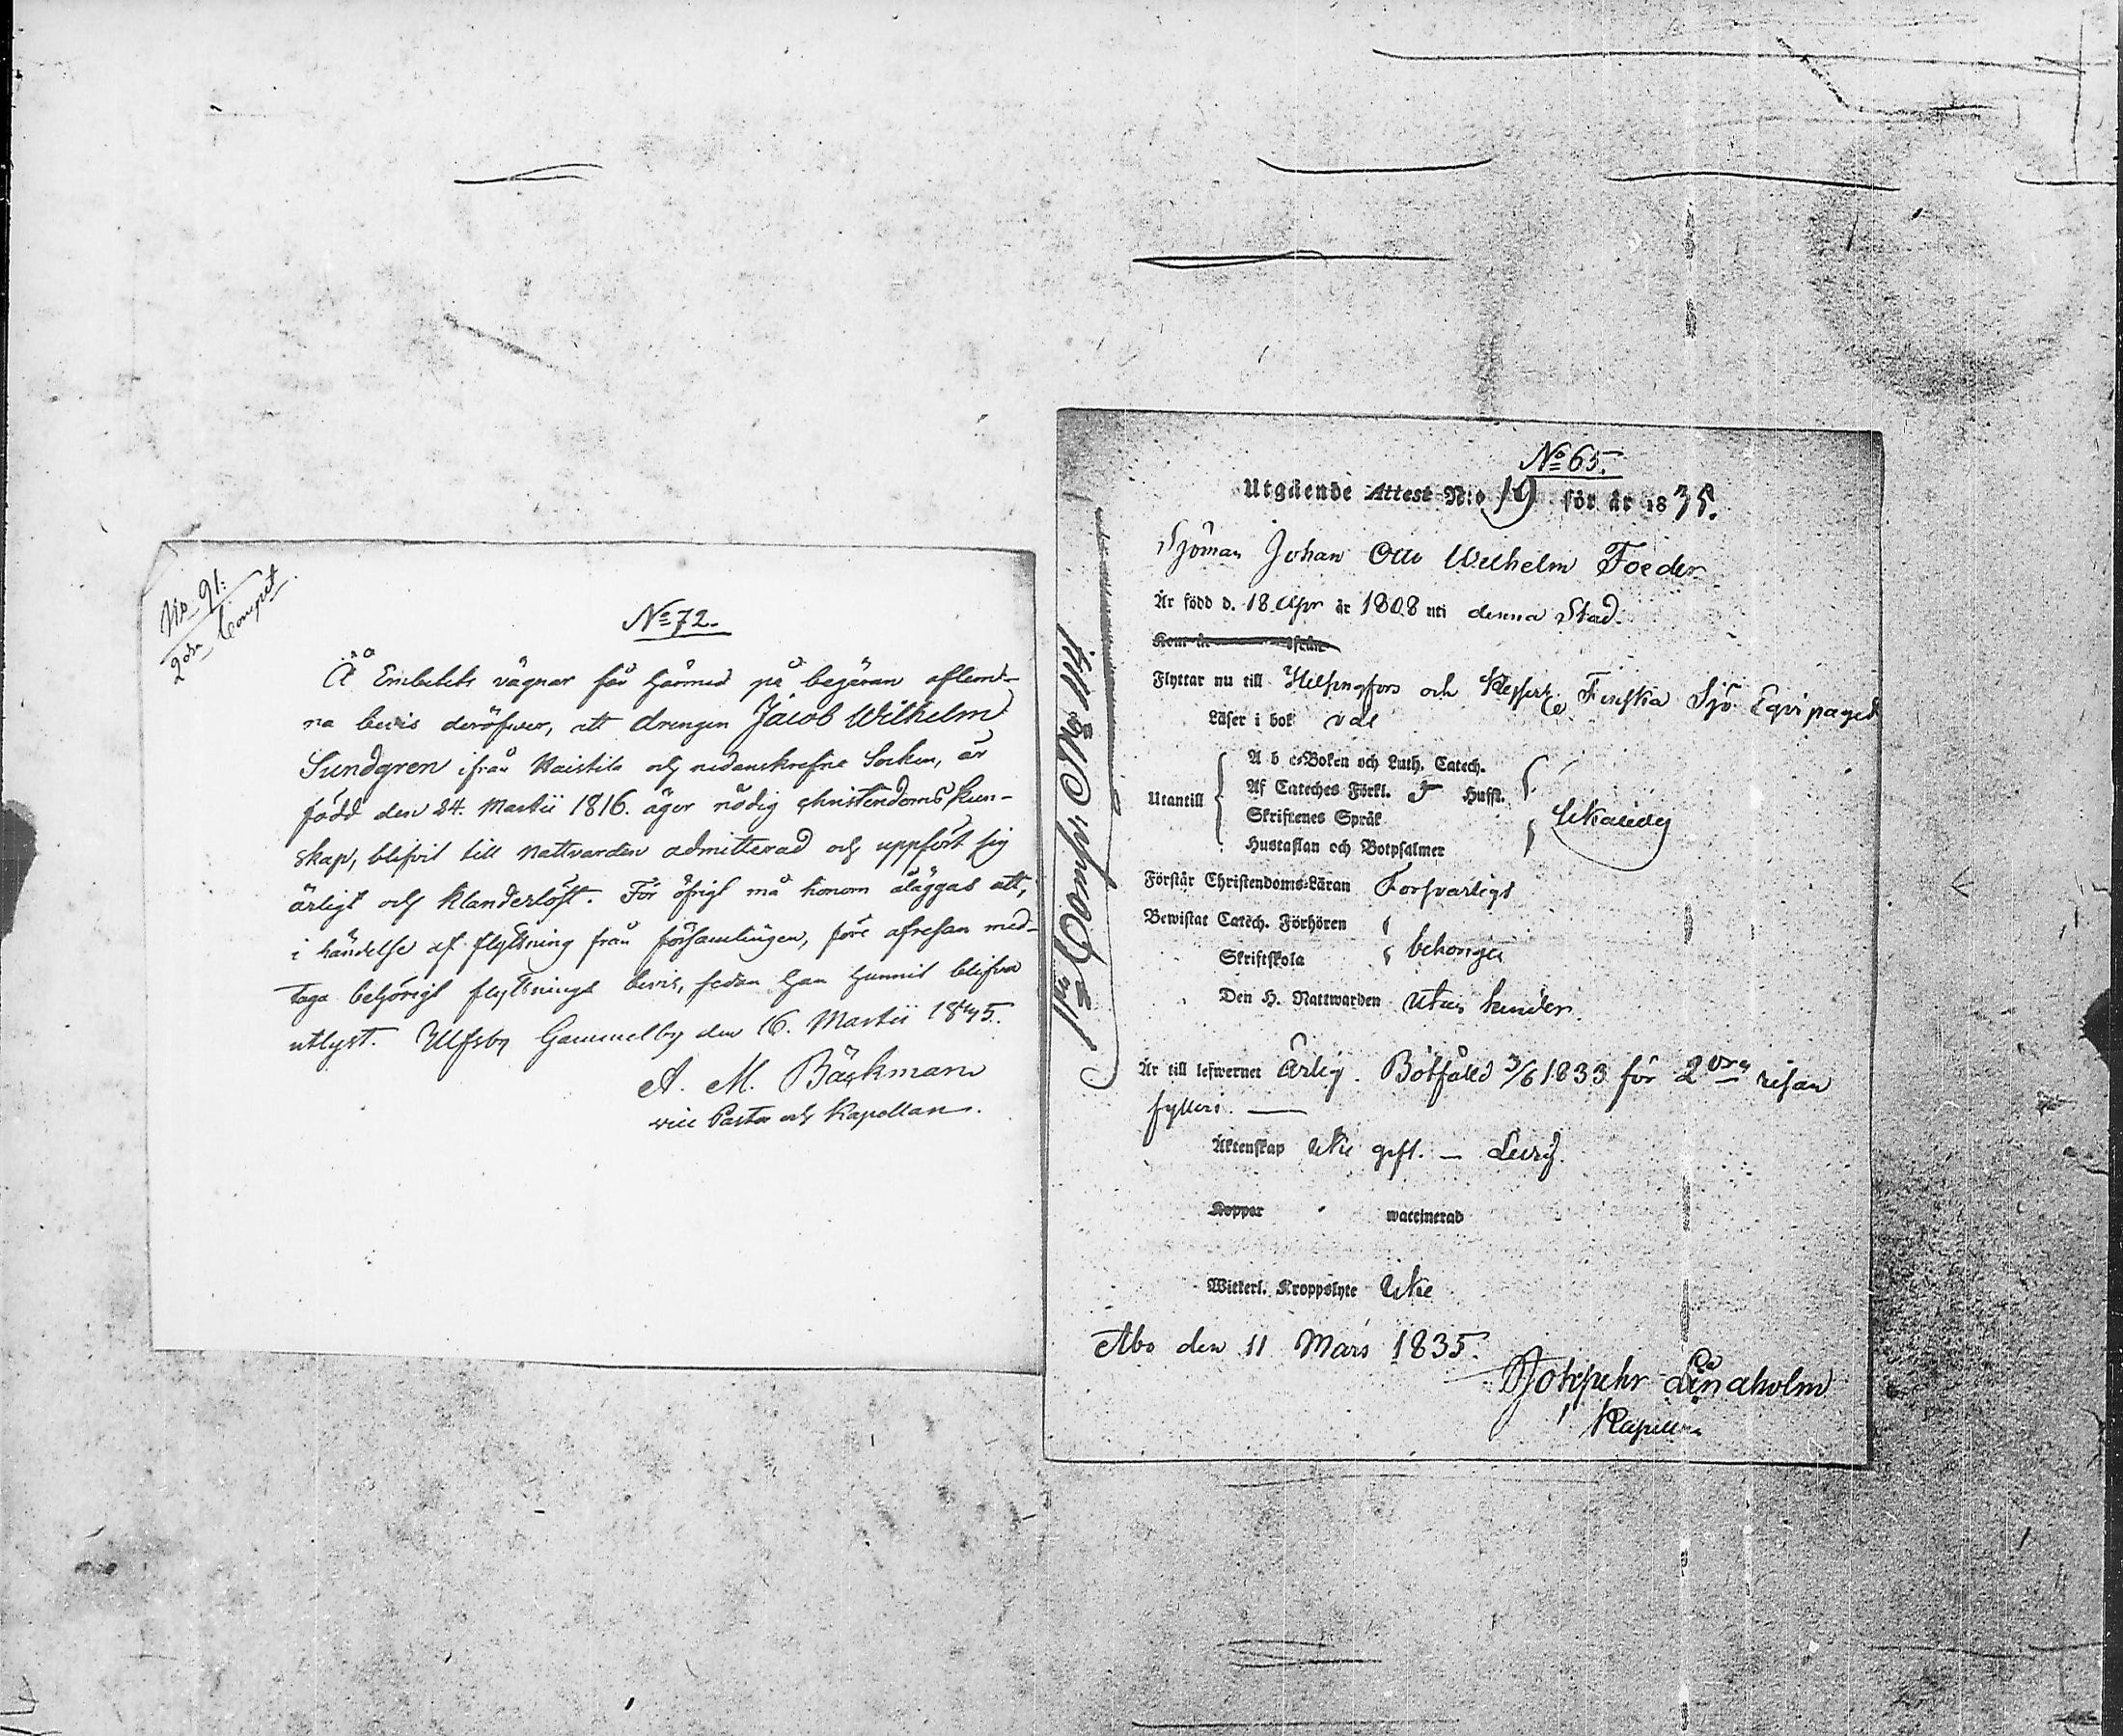 No 91.
2dra Compt.
No 72.
Å Embetets vägnar får härmed på begäran aflem-
na bevis deröfver, att drengen Jacob Wilhelm
Sundgren ifrån Haistila och nedanskrefne Socken, är
född den 24. Martii 1816. äger nödig christendoms kun-
skap, blifvit till nattvarden admitterad och uppfört sig
ärligt och klanderlöst. För öfrigt må honom åläggas att,
i händelse af flyttning från församlingen, före afresan med-
taga behörigt flyttnings bevis, sedan han hunnit blifva
utlyst. Ulfsby Gammelby den 16. Martii 1845.
A. M. Bäckman
vice Pastor och Kapellan.
1sta Comp: N:å 114
No 65.
Utgående Attest N:o 19 för år 1835.
Sjöman Johan Otto Wilhelm Foeder
Är född d. 18 Apr år 1808 uti denna Stad.
Kom år ifrån
Flyttar nu till Helsingfors och Finska Sjö Equipaget
Läser i bok väl
A b c-Boken och Luth. Catech.
Utantill Af Cateches Förkl. Hufst.
Skriftenes Språk
Hustaflan och Botpsalmer
Förstår Christendoms-Läran Försvarligt
Bewistat Catech. Förhören
Skriftskola behörigen
Den H. Nattwarden utan hinder.
Är till lefwernet Ärlig. Bötfälld 3/6 1833 för 2dra resan
fylleri.
Äktenskap icke gift. — Ledig.
Koppor waccinerad
Witterl. Kroppslyte icke
Åbo den 11 Mars 1835.
Lindholm
Kapellan